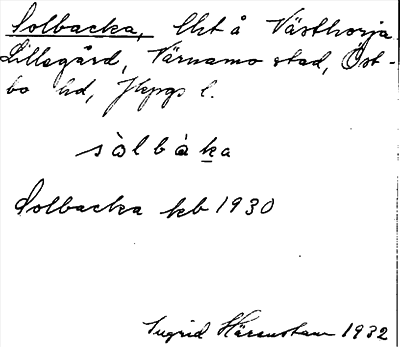 Solbacka, lht å Västhorja
Lillegård, Värnamo stad, Öst-
bo hd, Jkpgs l.
sòlbàka
Solbacka kb 1930
Ingrid 1932